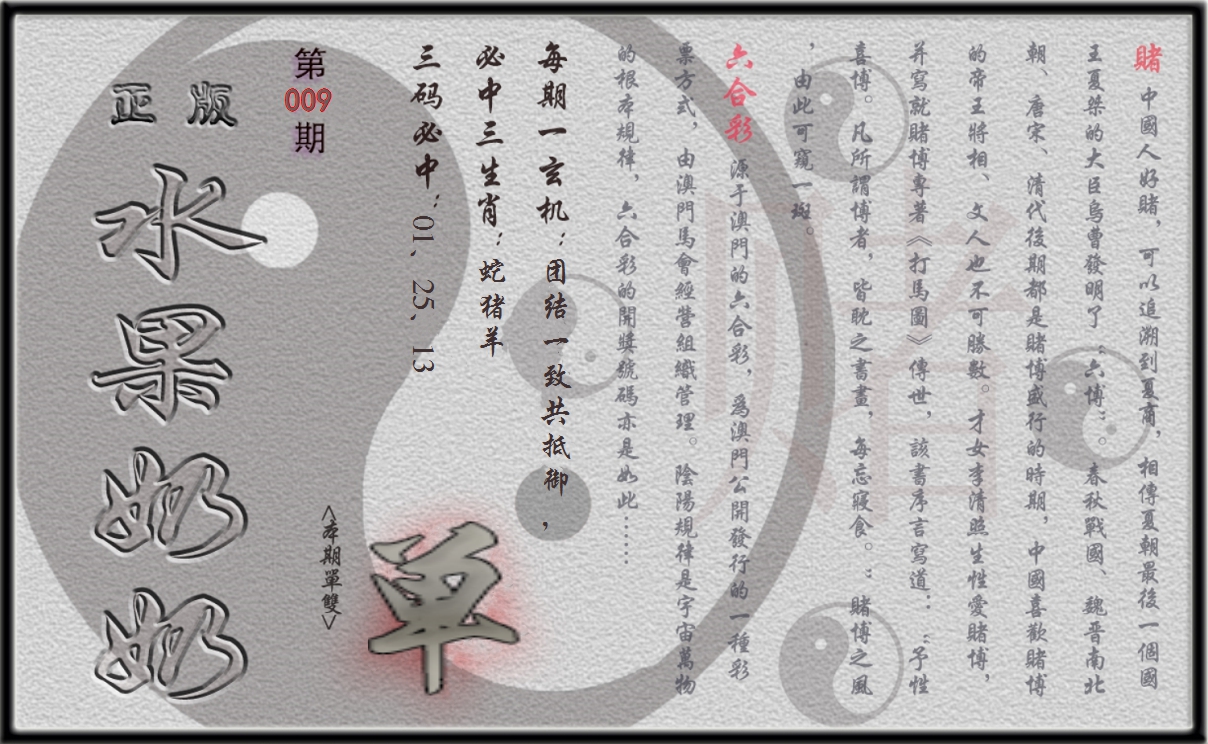 賭 中國人好賭，可以追溯到夏商，相傳夏朝最後一個國
王夏桀的大臣烏曹發明了“六博”。春秋戰國、魏晉南北
朝、唐宋、清代後期都是賭博盛行的時期，中國喜歡賭博
的帝王將相、文人也不可勝數。才女李清照生性愛賭博，
并寫就賭博專著《打馬圖》傳世，該書序言寫道：“予性
喜博。凡所謂博者，皆耽之書畫，每忘寢食。”賭博之風
，由此可窺一斑。
六合彩 源于澳門的六合彩，爲澳門公開發行的一種彩
票方式，由澳門馬會經營組織管理。陰陽規律是宇宙萬物
的根本規律，六合彩的開獎號碼亦是如此……
每期一玄机：团结一致共抵御，
必中三生肖：蛇猪羊
三码必中：01、25、13
單
<本期單雙>
第
009
期
正版
水果奶奶
赌